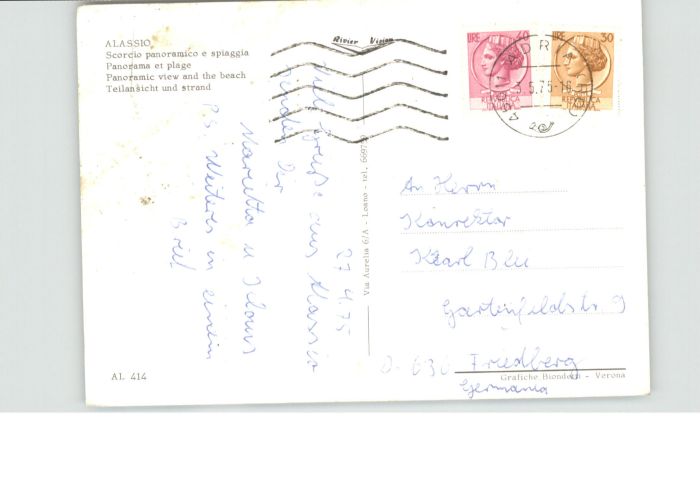 ALASSIO
Scorcio panoramico e spiaggia
Panorama et plage
Panoramic view and the beach
Teilansicht und strand
Rivier Vision
LIRE 40
REPVBBLICA
ITALIANA
LIRE 30
REPVBBLICA
ITALIANA
5.75-16
27.4.75
Viele Grüße aus Alassio
senden Dir
Marietta u Klaus
P.S. Weiteres in einem
Brief
Via Aurelia 6/A - Loano - tel.
An Herrn
Konrektor
Karl
Gartenfeldstr. 9
D-636 Friedberg
Germania
AL 414
Grafiche Biondetti - Verona